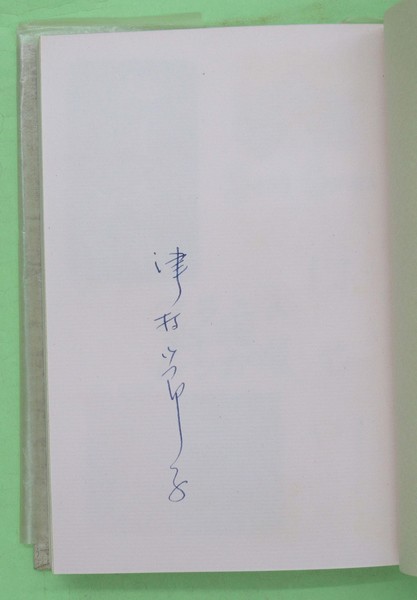 津村節子